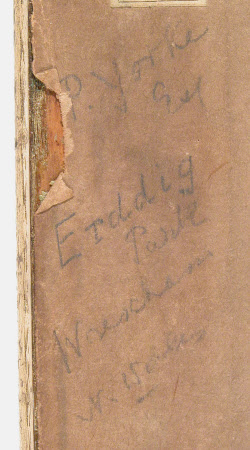 P. Yorke
Esq
Erddig
Park
Wrexham
N. Wales